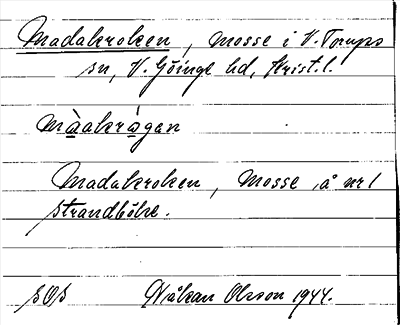 Madakroken, mosse i V. Torups
sn, V. Göinge hd, Krist. l.
màakrágan
Madakroken, Mosse å nr 1
Strandböke.
SOS Håkan Olsson 1944.